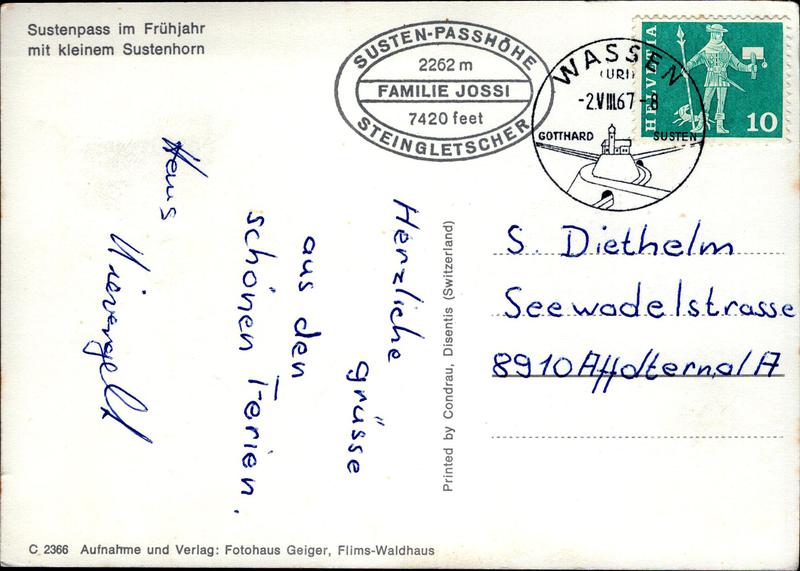 Sustenpass im Frühjahr
mit kleinem Sustenhorn
SUSTEN-PASSHÖHE
2262 m
FAMILIE JOSSI
7420 feet
STEINGLETSCHER
WASSEN
(URI)
-2.VIII.67-8
GOTTHARD SUSTEN
HELVETIA
10
Herzliche
grüsse
aus den
schönen Ferien.
Hans
Nievergelt
Printed by Condrau, Disentis (Switzerland)
S. Diethelm
Seewadelstrasse
8910 Affolternal A
C 2366 Aufnahme und Verlag: Fotohaus Geiger, Flims-Waldhaus